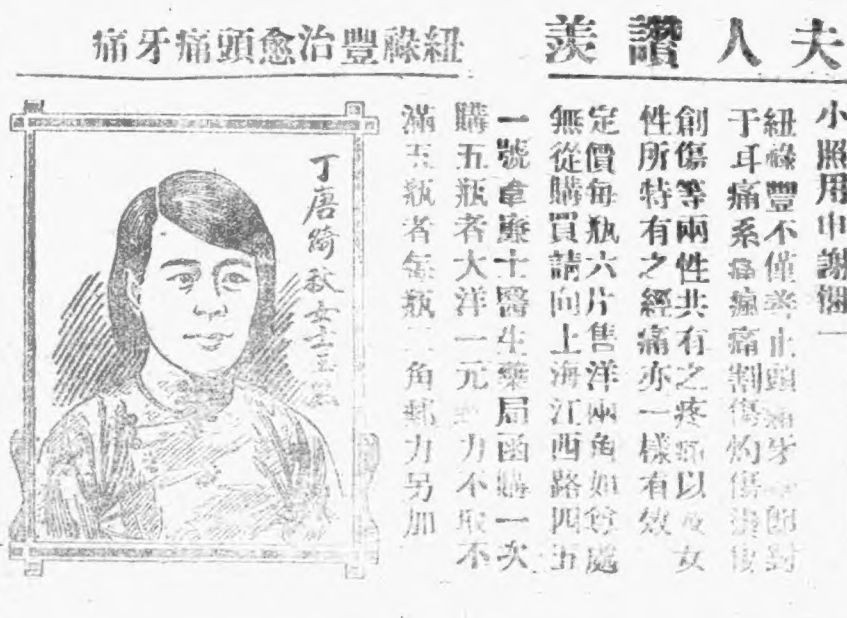 夫人讚羨
紐祿豐治愈頭痛牙痛
小照用申謝悃一
紐祿豐不僅善止頭痛牙 卽對
于耳痛系痛瘋痛割傷灼傷 
創傷等兩性共有之疼痛以及女
性所特有之經痛亦一樣有效
定價每瓶六片售洋兩角如 處
無從購買請向上海江西路四五
一號韋廉士醫生藥局函購一次
購五瓶者大洋一元 力不取不
滿五瓶者每瓶二角郵力另加
丁唐 秋女士玉照